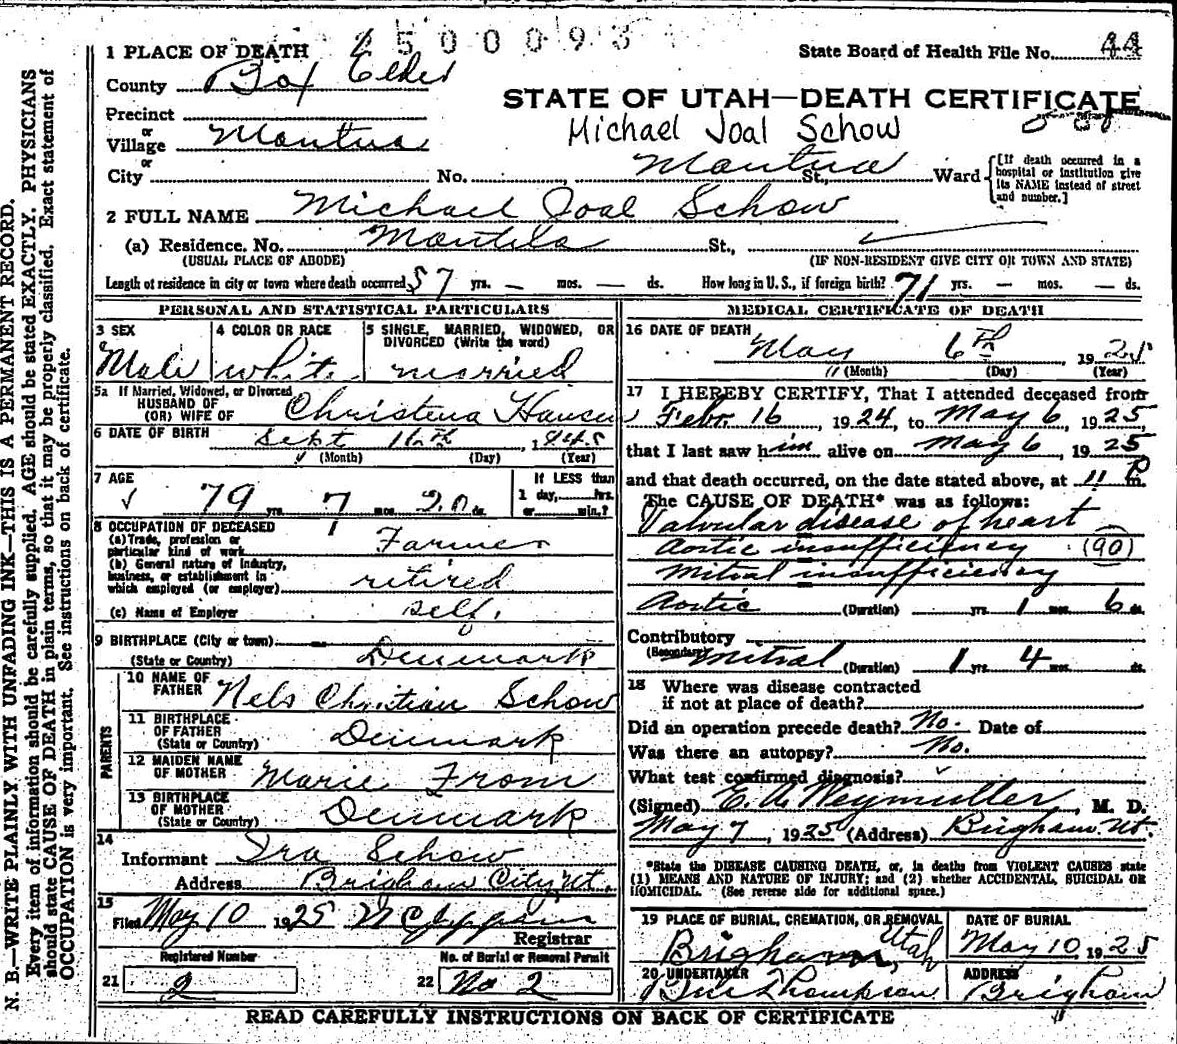 2500093
1 PLACE OF DEATH
State Board of Health File No. 44
County Box Elder
STATE OF UTAH—DEATH CERTIFICATE
Precinct
Michael Joal Schow
or
Village Mantua
or
City No. Mantua St., Ward
[If death occurred in a hospital or institution give its NAME instead of street and number.]
2 FULL NAME Michael Joal Schow
(a) Residence. No. Mantua St.,
(USUAL PLACE OF ABODE) (IF NON-RESIDENT GIVE CITY OR TOWN AND STATE)
Length of residence in city or town where death occurred 57 yrs. — mos. — ds. How long in U. S., if foreign birth? 71 yrs. — mos. — ds.
PERSONAL AND STATISTICAL PARTICULARS
3 SEX 4 COLOR OR RACE 5 SINGLE, MARRIED, WIDOWED, OR DIVORCED (Write the word)
Male white married
5a If Married, Widowed, or Divorced
HUSBAND OF
(OR) WIFE OF Christena Hansen
6 DATE OF BIRTH Sept 16th, 1845
(Month) (Day) (Year)
7 AGE If LESS than
79 yrs. 7 mos. 20 ds. 1 day, hrs.
or min.?
8 OCCUPATION OF DECEASED
(a) Trade, profession or
particular kind of work Farmer
(b) General nature of Industry,
business, or establishment in
which employed (or employer) retired
(c) Name of Employer self.
9 BIRTHPLACE (City or town) —
(State or Country) Denmark
PARENTS
10 NAME OF
FATHER Nels Christian Schow
11 BIRTHPLACE
OF FATHER
(State or Country) Denmark
12 MAIDEN NAME
OF MOTHER Marie From
13 BIRTHPLACE
OF MOTHER
(State or Country) Denmark
14
Informant Ira Schow
Address Brigham City Ut.
15
Filed May 10 1925
Registrar
Registered Number No. of Burial or Removal Permit
21 2 22 No 2
MEDICAL CERTIFICATE OF DEATH
16 DATE OF DEATH
May 6th 1925
(Month) (Day) (Year)
17 I HEREBY CERTIFY, That I attended deceased from
Febr. 16, 1924, to May 6, 1925,
that I last saw him alive on May 6, 1925
and that death occurred, on the date stated above, at 11 P m.
The CAUSE OF DEATH* was as follows:
Valvular disease of heart
Aortic insufficiency (90)
Mitral insufficiency
Aortic (Duration) yrs. 1 mos. 6 ds.
Contributory
(Secondary) Mitral (Duration) 1 yrs. 4 mos. ds.
18 Where was disease contracted
if not at place of death?
Did an operation precede death? No. Date of
Was there an autopsy? No.
What test confirmed diagnosis?
(Signed) E. A. Weymuller, M. D.
May 7, 1925 (Address) Brigham Ut.
*State the DISEASE CAUSING DEATH, or, in deaths from VIOLENT CAUSES state
(1) MEANS AND NATURE OF INJURY; and (2) whether ACCIDENTAL, SUICIDAL OR
HOMICIDAL. (See reverse side for additional space.)
19 PLACE OF BURIAL, CREMATION, OR REMOVAL DATE OF BURIAL
Brigham, Utah May 10, 1925
20 UNDERTAKER ADDRESS
Thompson Brigham
READ CAREFULLY INSTRUCTIONS ON BACK OF CERTIFICATE
N. B.—WRITE PLAINLY WITH UNFADING INK—THIS IS A PERMANENT RECORD.
Every item of information should be carefully supplied. AGE should be stated EXACTLY. PHYSICIANS
should state CAUSE OF DEATH in plain terms, so that it may be properly classified. Exact statement of
OCCUPATION is very important. See instructions on back of certificate.